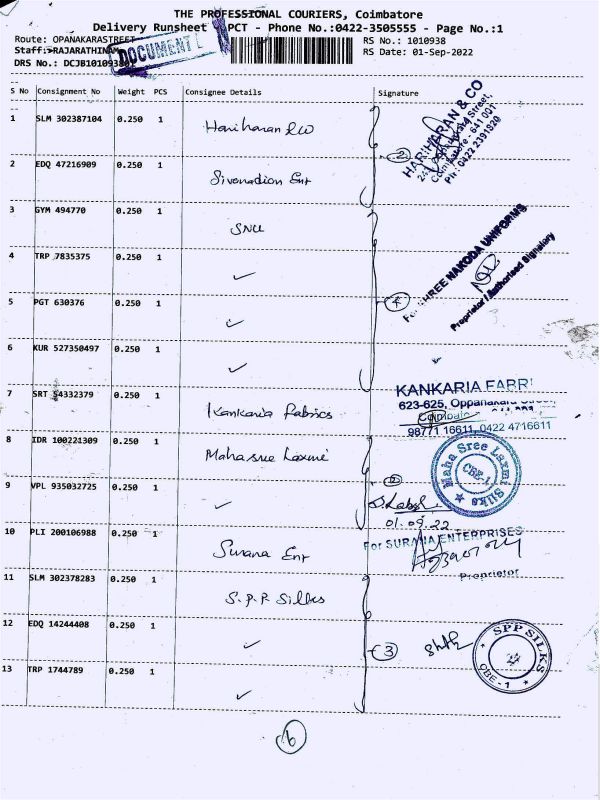 THE PROFESSIONAL COURIERS, Coimbatore
Delivery Runsheet PCT - Phone No.:0422-3505555 - Page No.:1
Route: OPANAKARASTREET RS No.: 1010938
Staff:-RAJARATHINAM RS Date: 01-Sep-2022
DRS No.: DCJB1010938
DOCUMENT
S No Consignment No Weight PCS Consignee Details Signature
1 SLM 302387104 0.250 1 Hariharan & CO
HARIHARAN & CO
Coimbatore - 641 001
Ph: 0422 2391820
2
2 EDQ 47216909 0.250 1 Sivenadian Ent
3 GYM 494770 0.250 1 SNU
4 TRP 7835375 0.250 1 ✓
For SHREE NAKODA UNIFORMS
Proprietor / Authorised Signatory
4
5 PGT 630376 0.250 1 ✓
6 KUR 527350497 0.250 1 ✓
7 SRT 54332379 0.250 1 Kankaria Fabrics
KANKARIA FABRI
623-625, Oppanakara
Coimbato
98771 16611, 0422 4716611
8 IDR 100221309 0.250 1 Mahasree Laxmi
Maha Sree Laxmi Silks
CBE-1
9 VPL 935032725 0.250 1 ✓
01.09.22
10 PLI 200106988 0.250 1 Surana Ent
For SURANA ENTERPRISES
Proprietor
11 SLM 302378283 0.250 1 S.P.P. Silks
12 EDQ 14244408 0.250 1 ✓
3
SPP SILKS
CBE - 1
13 TRP 1744789 0.250 1 ✓
6